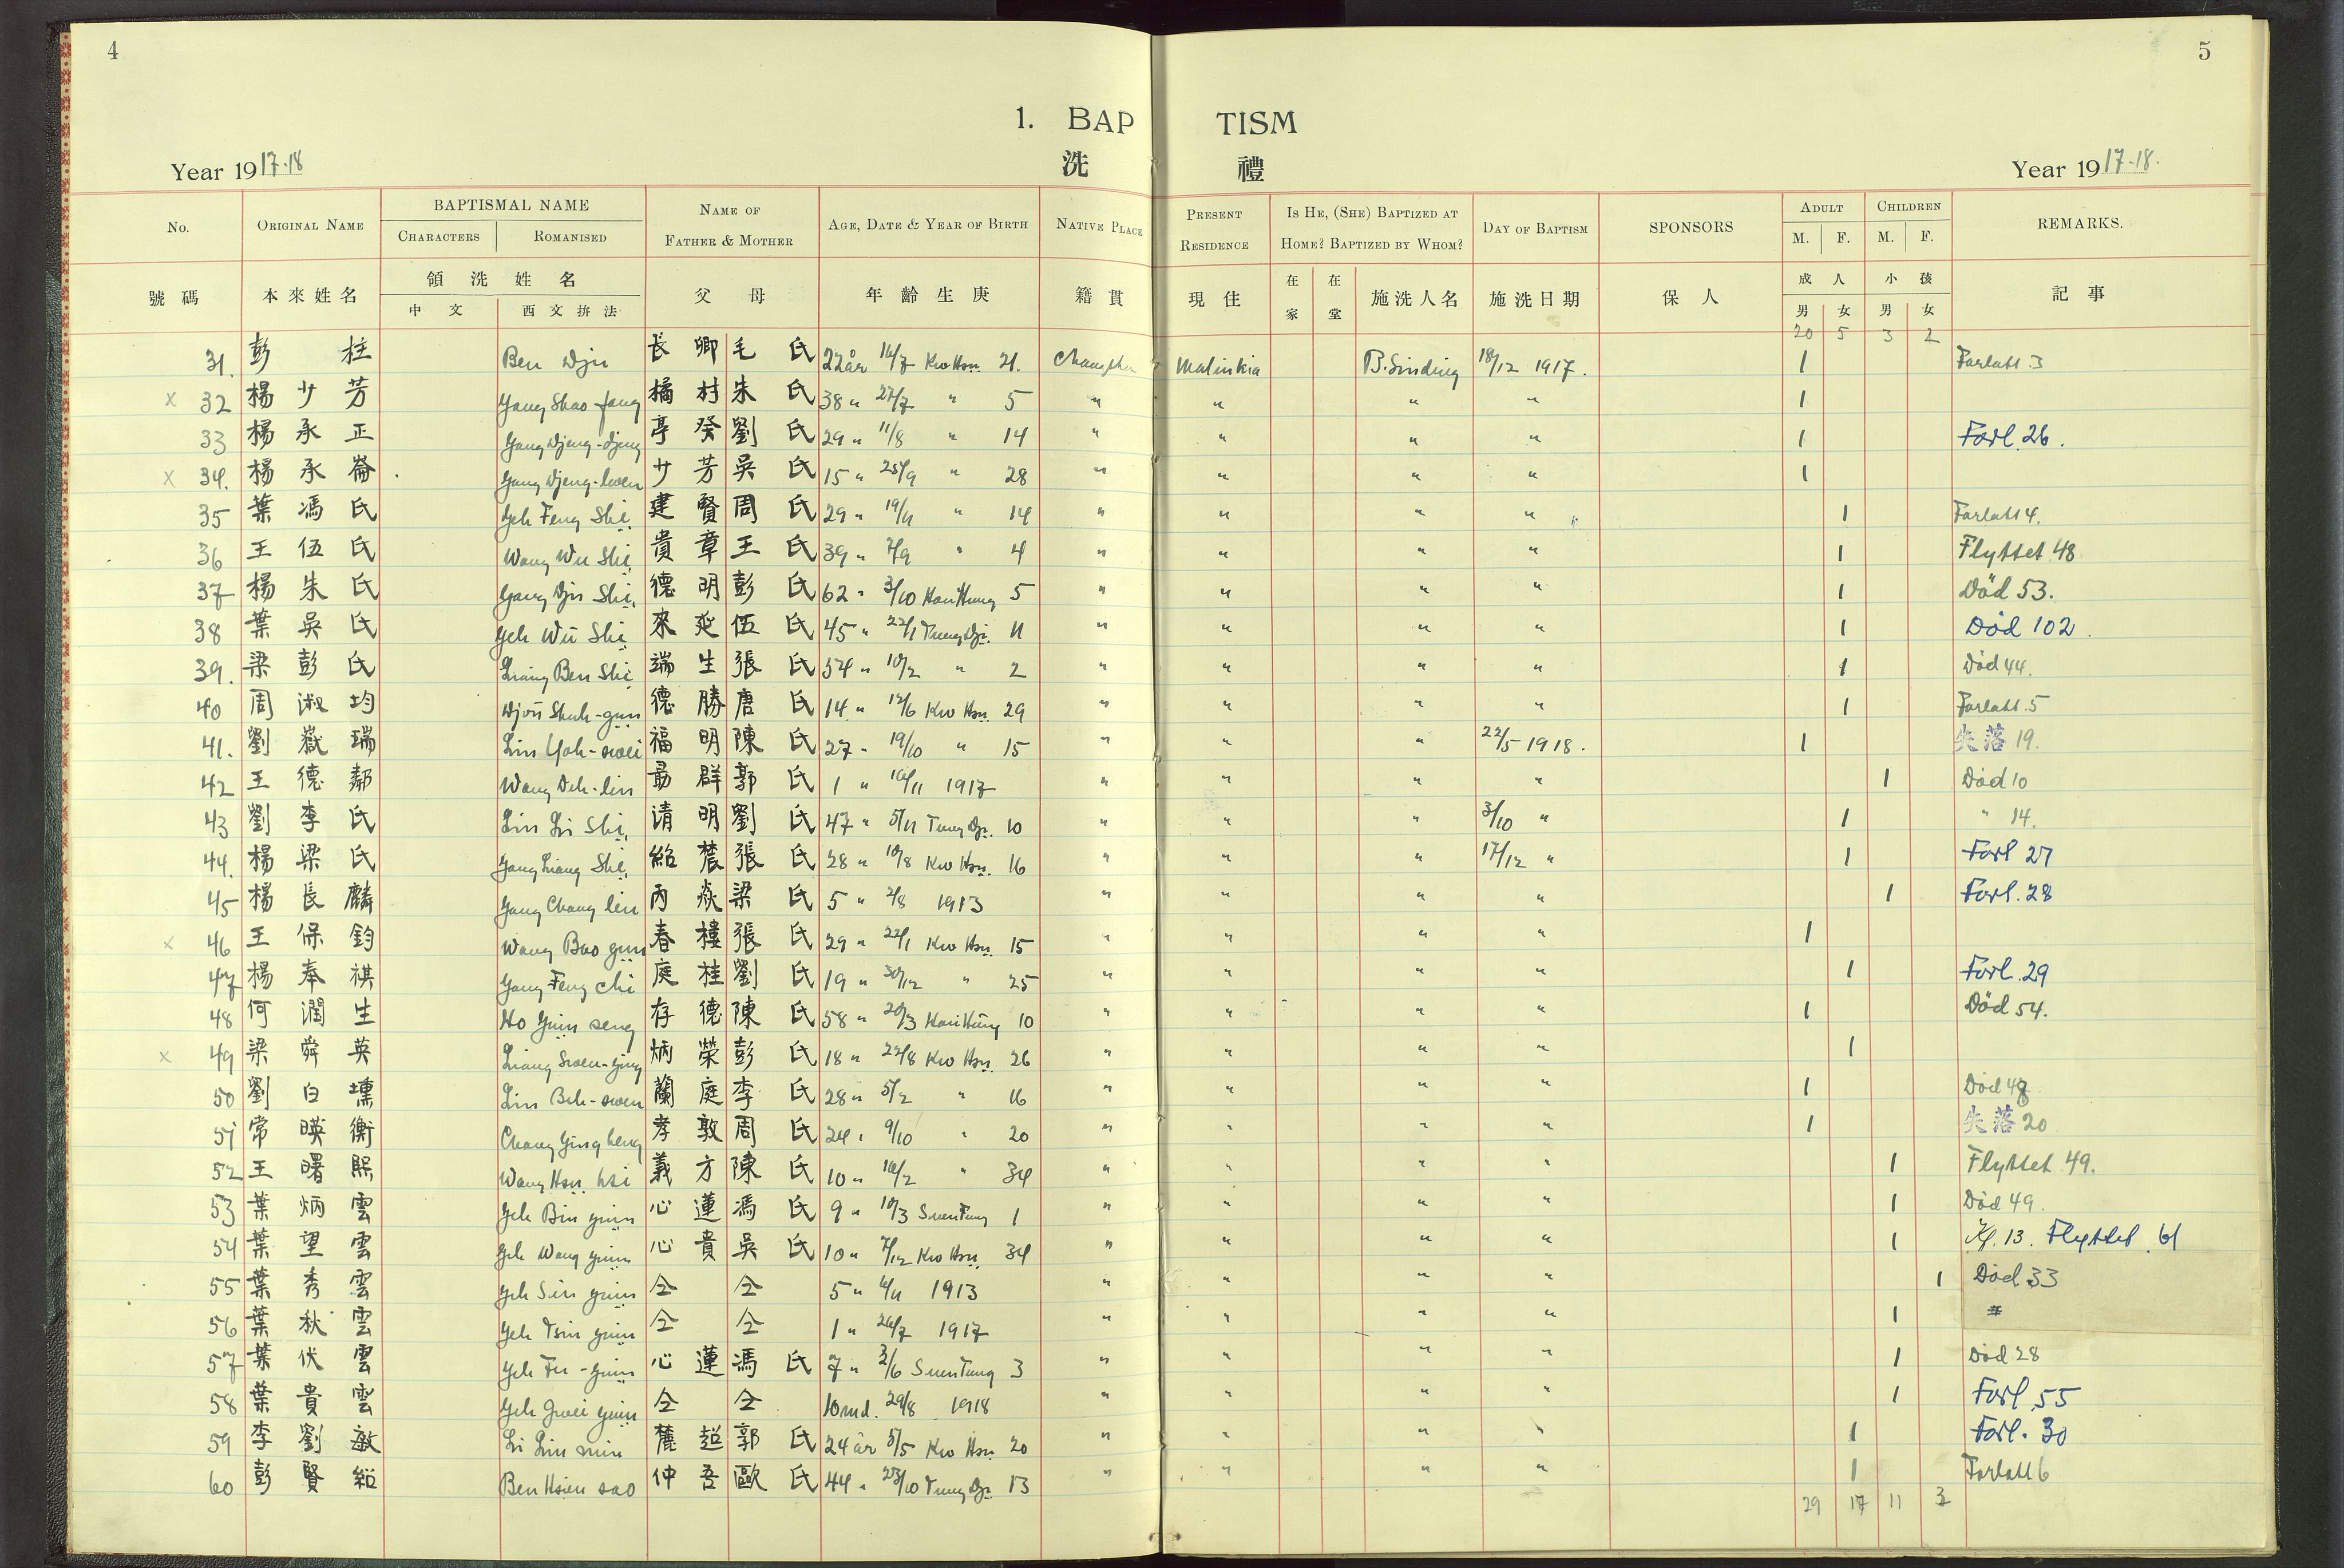 4
5
1. BAP TISM
洗 禮
Year 1917-18
Year 1917-18.
No. ORIGINAL NAME BAPTISMAL NAME CHARACTERS ROMANISED NAME OF FATHER & MOTHER AGE, DATE & YEAR OF BIRTH NATIVE PLACE PRESENT RESIDENCE IS HE, (SHE) BAPTIZED AT HOME? BAPTIZED BY WHOM? DAY OF BAPTISM SPONSORS ADULT M. F. CHILDREN M. F. REMARKS.
號碼 本來姓名 領洗姓名 中文 西文拚法 父母 年齡生庚 籍貫 現住 在家 在堂 施洗人名 施洗日期 保人 成人 男 女 小孩 男 女 記事
20 5 3 2
31. 彭柱 Ben Dju 長卿 毛氏 22 år 14/7 Kwo Hsu 21. Changsha Malinkia B. Sinding 18/12 1917. 1 Forlatt 3
x 32 楊少芳 Yang Shao-fang 橘村 朱氏 38 " 27/7 " 5 " " " " 1
33 楊承正 Yang Djeng-djeng 亭癸 劉氏 29 " 11/8 " 14 " " " " 1 Forl. 26.
x 34. 楊承崙 Yang Djeng-lwen 少芳 吳氏 15 " 25/9 " 28 " " " " 1
35 葉馮氏 Yeh Feng Shi 建賢 周氏 29 " 19/11 " 14 " " " " 1 Forlatt 4.
36 王伍氏 Wang Wu Shi 貴章 王氏 39 " 7/9 " 4 " " " " 1 Flyttet 48
37 楊朱氏 Yang Dju Shi 德明 彭氏 62 " 3/10 Hsien Hung 5 " " " " 1 Död 53.
38 葉吳氏 Yeh Wu Shi 來延 伍氏 45 " 22/1 Tung Dji 11 " " " " 1 Död 102
39. 梁彭氏 Liang Ben Shi 端生 張氏 54 " 10/2 " 2 " " " " 1 Död 44.
40 周淑均 Djou Shuh-gun 德勝 唐氏 14 " 12/6 Kwo Hsu 29 " " " " 1 Forlatt 5
41. 劉嶽瑞 Liu Yoh-swei 福明 陳氏 27 " 19/10 " 15 " " " 22/5 1918. 1 失落 19.
42 王德鄰 Wang Deh-lin 勗群 郭氏 1 " 16/11 1917 " " " " 1 Död 10
43 劉李氏 Liu Li Shi 清明 劉氏 47 " 5/11 Tung Dji. 10 " " " 3/10 " 1 " 14.
44. 楊梁氏 Yang Liang Shi 紹麓 張氏 28 " 10/8 Kwo Hsu. 16 " " " 17/12 " 1 Forl 27
45 楊長麟 Yang Chang lin 丙焱 梁氏 5 " 2/8 1913 " " " " 1 Forl. 28
x 46 王保鈞 Wang Bao gun 春樓 張氏 29 " 22/1 Kwo Hsu 15 " " " " 1
47 楊奉祺 Yang Feng Chi 庭桂 劉氏 19 " 30/12 " 25 " " " " 1 Forl. 29
48 何潤生 Ho Yuin seng 存德 陳氏 58 " 20/3 Hsien Hung 10 " " " " 1 Död 54.
x 49 梁舜英 Liang Swen-ying 炳榮 彭氏 18 " 22/8 Kwo Hsu 26 " " " " 1
50 劉白壎 Liu Beh-swen 蘭庭 李氏 28 " 5/2 " 16 " " " " 1 Död 48
51 常暎衡 Chang Ying heng 孝敦 周氏 24 " 9/10 " 20 " " " " 1 失落 20
52 王曙熙 Wang Hsu hsi 義方 陳氏 10 " 16/2 " 34 " " " " 1 Flyttet 49.
53 葉炳雲 Yeh Bin yuin 心蓮 馮氏 9 " 10/3 Suen Tung 1 " " " " 1 Död 49.
54 葉望雲 Yeh Wang yuin 心貴 吳氏 10 " 7/12 Kwo Hsu 34 " " " " 1 Kf. 13. Flyttet 61
55 葉秀雲 Yeh Siu yuin 仝 仝 5 " 4/11 1913 " " " " 1 Död 33
56 葉秋雲 Yeh Tsiu yuin 仝 仝 1 " 26/7 1917 " " " " 1 "
57 葉伏雲 Yeh Fu-yuin 心蓮 馮氏 7 " 3/6 Suen Tung 3 " " " " 1 Död 28
58 葉貴雲 Yeh Gwei yuin 仝 仝 10 md. 29/8 1918 " " " " 1 Forl 55
59 李劉敏 Li Liu min 麓超 郭氏 24 år 5/5 Kwo Hsu 20 " " " " 1 Forl. 30
60 彭賢紹 Ben Hsien sao 仲吾 歐氏 44 " 23/10 Tung Dji 13 " " " " 1 Forlatt 6
29 17 11 3